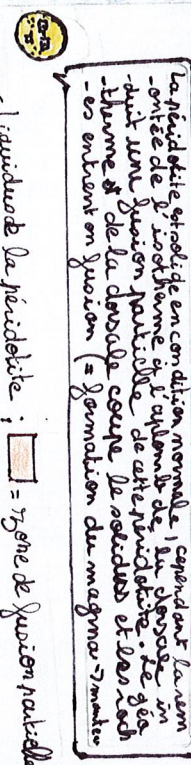 La péridotite est solide en condition normale, cependant la rem
-ontée de l'isotherme à l'aplomb de la dorsale in
-duit une fusion partielle de cette péridotite. Le géo
-therme de la dorsale coupe le solidus et les roch
-es entrent en fusion (= formation du magma →
-lividus de la péridotite ; = zone de fusion partielle